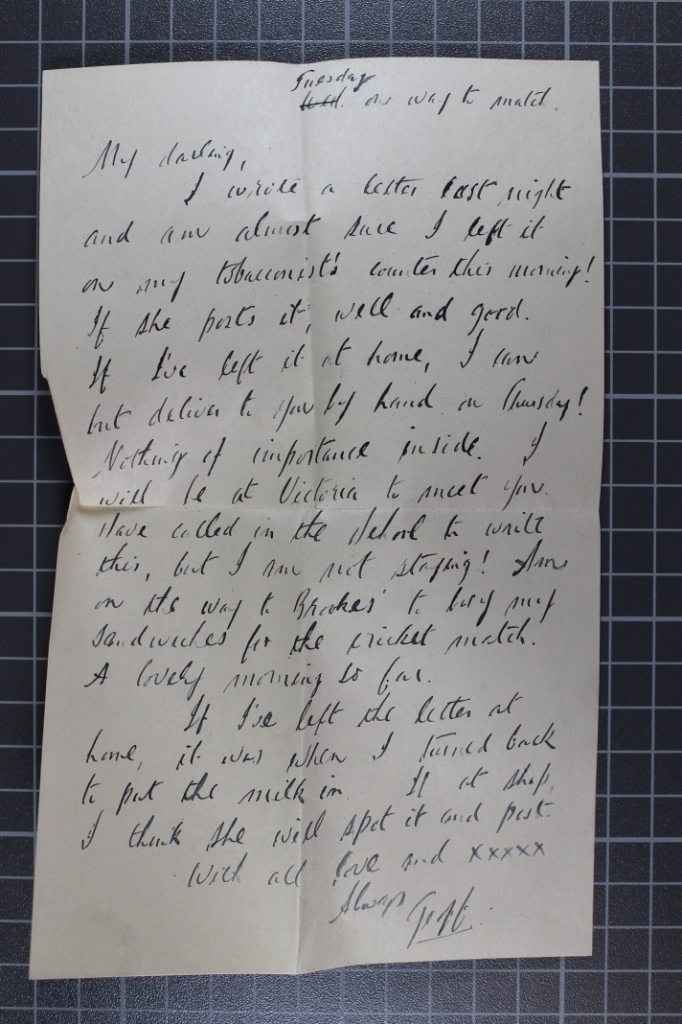 Tuesday
Wed. on way to match.
My darling,
I wrote a letter last night
and am almost sure I left it
on my tobacconist's counter this morning!
If she posts it, well and good.
If I've left it at home, I can
but deliver to you by hand on Thursday!
Nothing of importance inside. I
will be at Victoria to meet you.
Have called in the to write
this, but I am not staying! Am
on the way to to buy my
sandwiches for the cricket match.
A lovely morning so far.
If I've left the letter at
home, it was when I turned back
to put the milk in. If at shop,
I think she will spot it and post.
With all love and xxxxx
Always